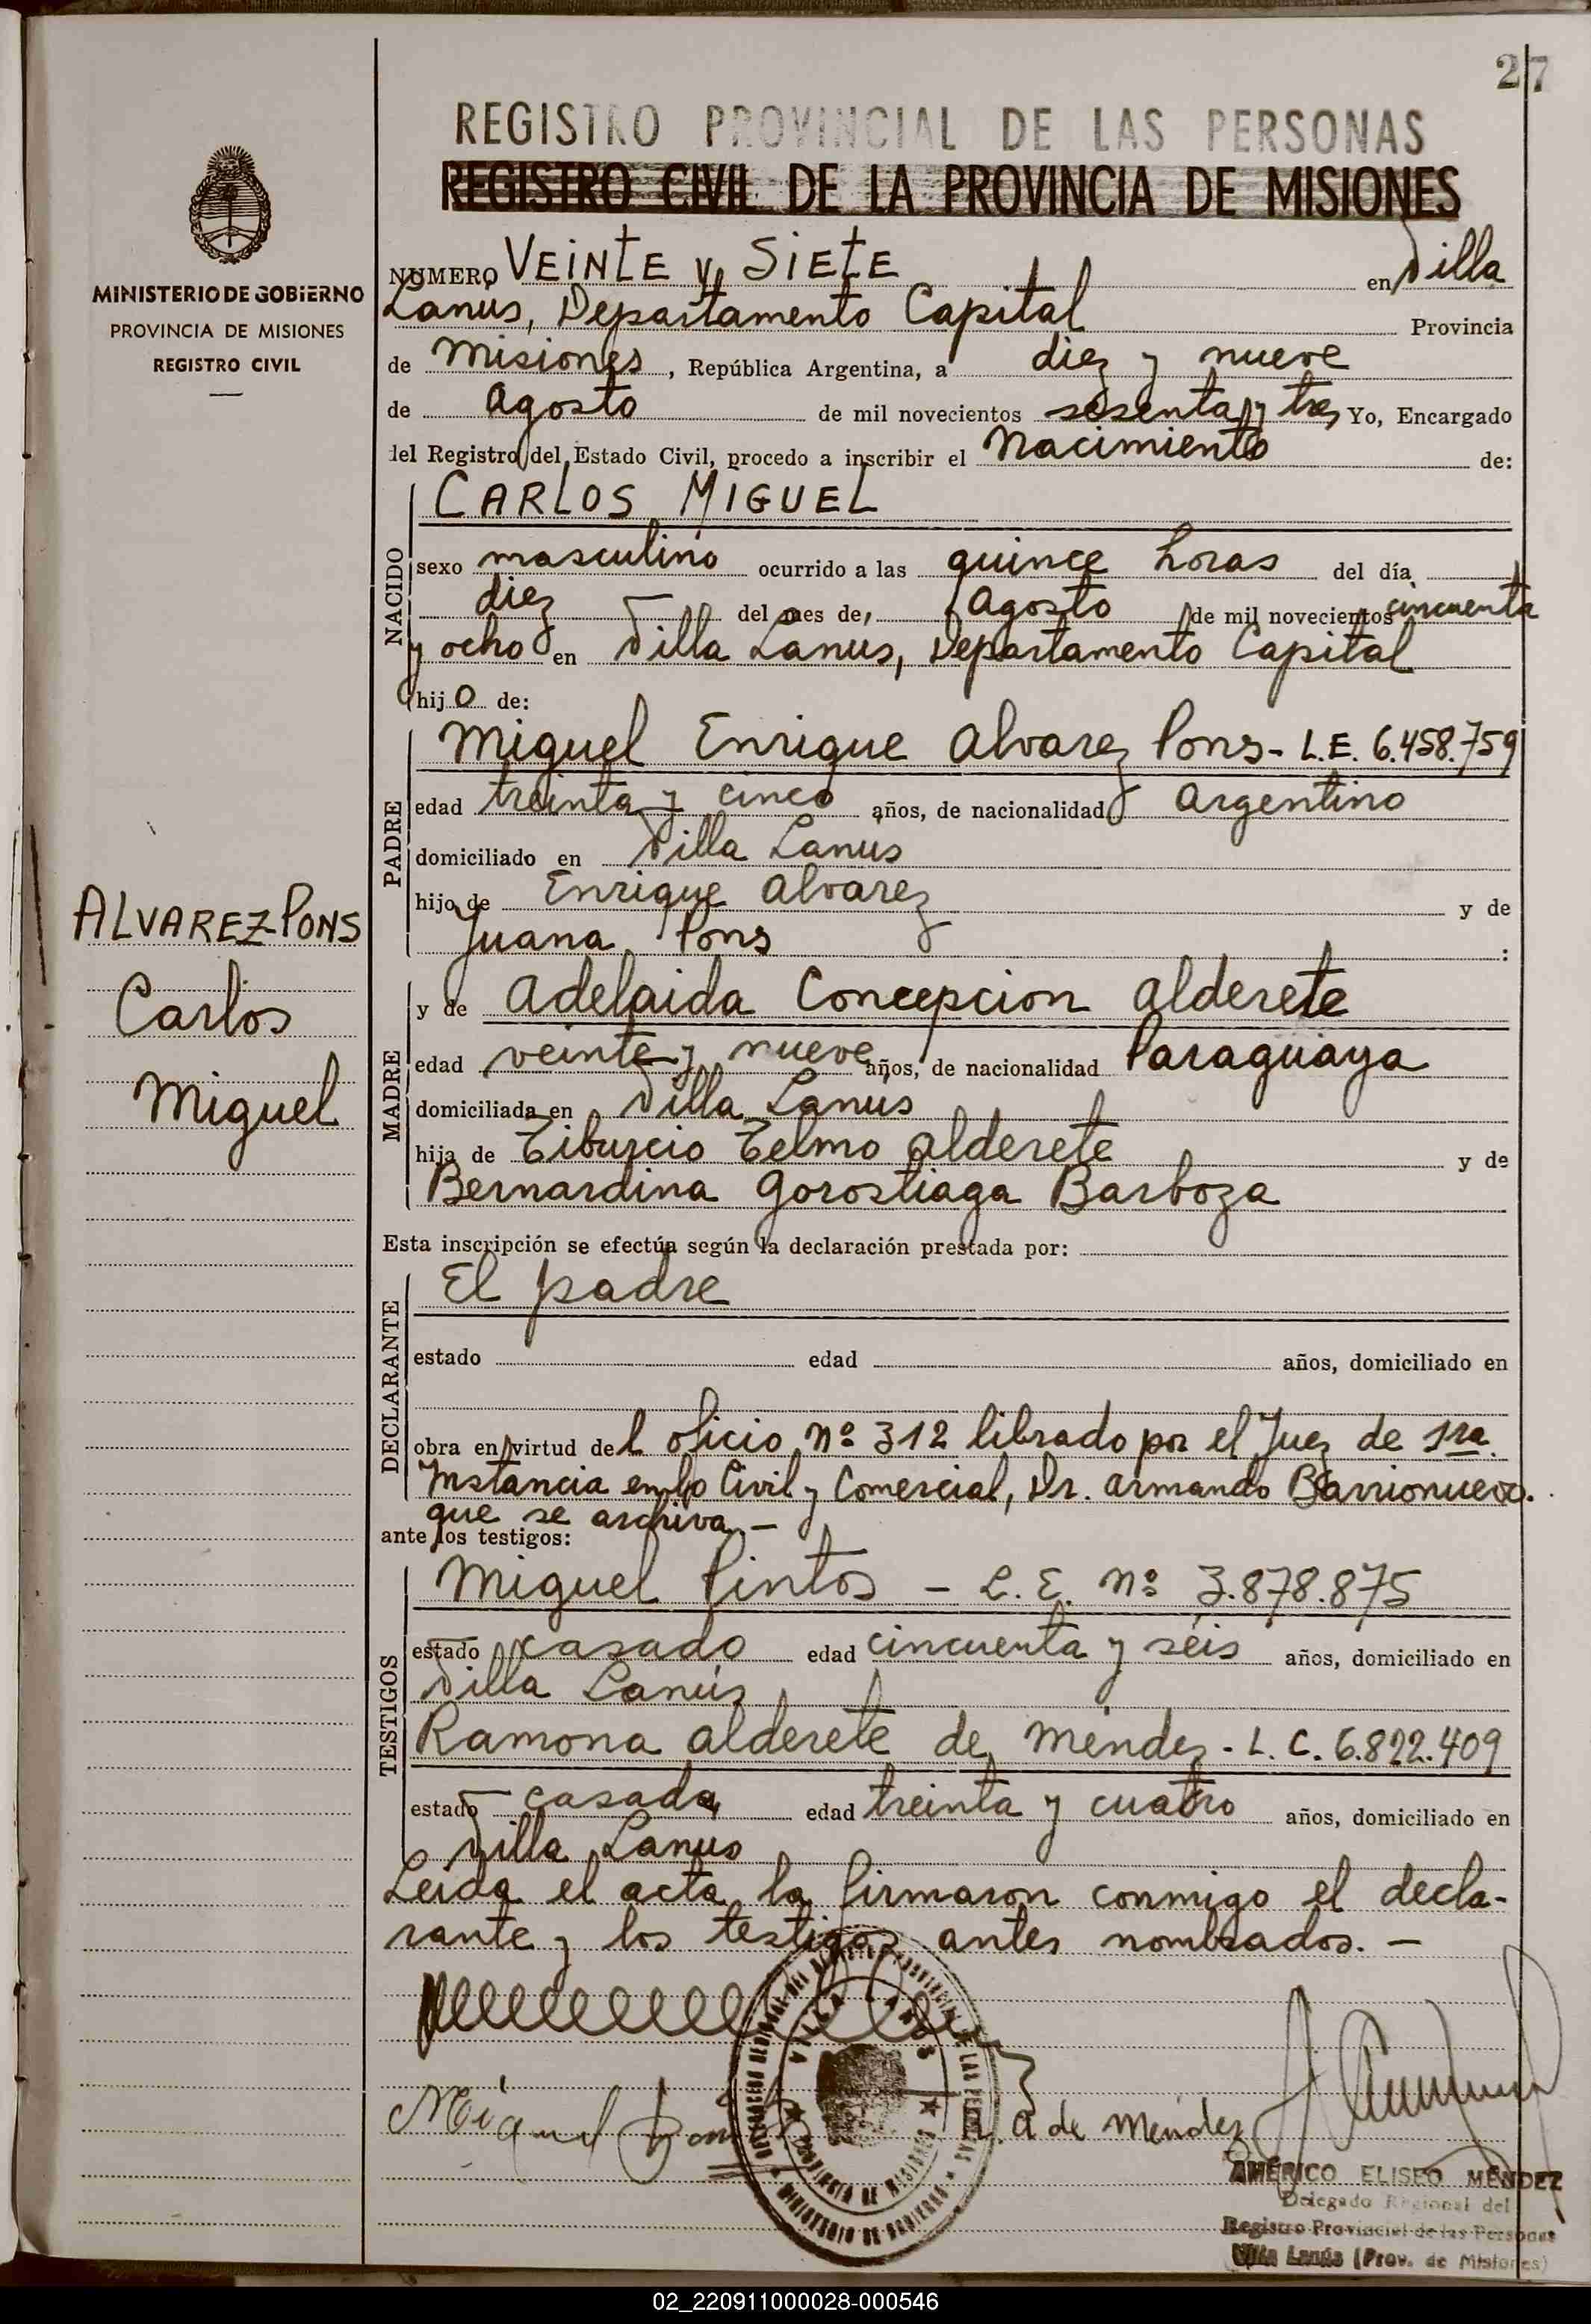 27
REGISTRO PROVINCIAL DE LAS PERSONAS
REGISTRO CIVIL DE LA PROVINCIA DE MISIONES
MINISTERIO DE GOBIERNO
PROVINCIA DE MISIONES
REGISTRO CIVIL
NUMERO VEINTE y SIETE en Villa
Lanus, Departamento Capital Provincia
de Misiones, República Argentina, a diez y nueve
de Agosto de mil novecientos sesenta y tres Yo, Encargado
del Registro del Estado Civil, procedo a inscribir el Nacimiento de:
NACIDO
CARLOS MIGUEL
sexo masculino ocurrido a las quince horas del día
diez del mes de Agosto de mil novecientos cincuenta
y ocho en Villa Lanus, Departamento Capital
hijo de:
PADRE
Miguel Enrique Alvarez Pons - L.E. 6.458.759
edad treinta y cinco años, de nacionalidad Argentino
domiciliado en Villa Lanus
hijo de Enrique Alvarez y de
Juana Pons :
ALVAREZ PONS
Carlos
Miguel
MADRE
y de Adelaida Concepcion Alderete
edad veinte y nueve años, de nacionalidad Paraguaya
domiciliada en Villa Lanus
hija de Tiburcio Telmo Alderete y de
Bernardina Gorostiaga Barboza
Esta inscripción se efectúa según la declaración prestada por:
DECLARANTE
El padre
estado edad años, domiciliado en
obra en virtud del oficio Nº 312 librado por el Juez de 1ra.
Instancia en lo Civil y Comercial, Dr. Armando Barrionuevo.
que se archiva.-
ante los testigos:
TESTIGOS
Miguel Pintos - L.E. Nº 3.878.875
estado casado edad cincuenta y séis años, domiciliado en
Villa Lanús
Ramona Alderete de Méndez - L.C. 6.822.409
estado casada edad treinta y cuatro años, domiciliado en
Villa Lanus
Leída el acta, la firmaron conmigo el decla-
rante y los testigos antes nombrados. -
VILLA LANUS
PROVINCIA DE MISIONES
MINISTERIO DE GOBIERNO
Miguel
R. A de Mendez
AMERICO ELISEO MENDEZ
Delegado Regional del
Registro Provincial de las Personas
Villa Lanús (Prov. de Misiones)
02_220911000028-000546